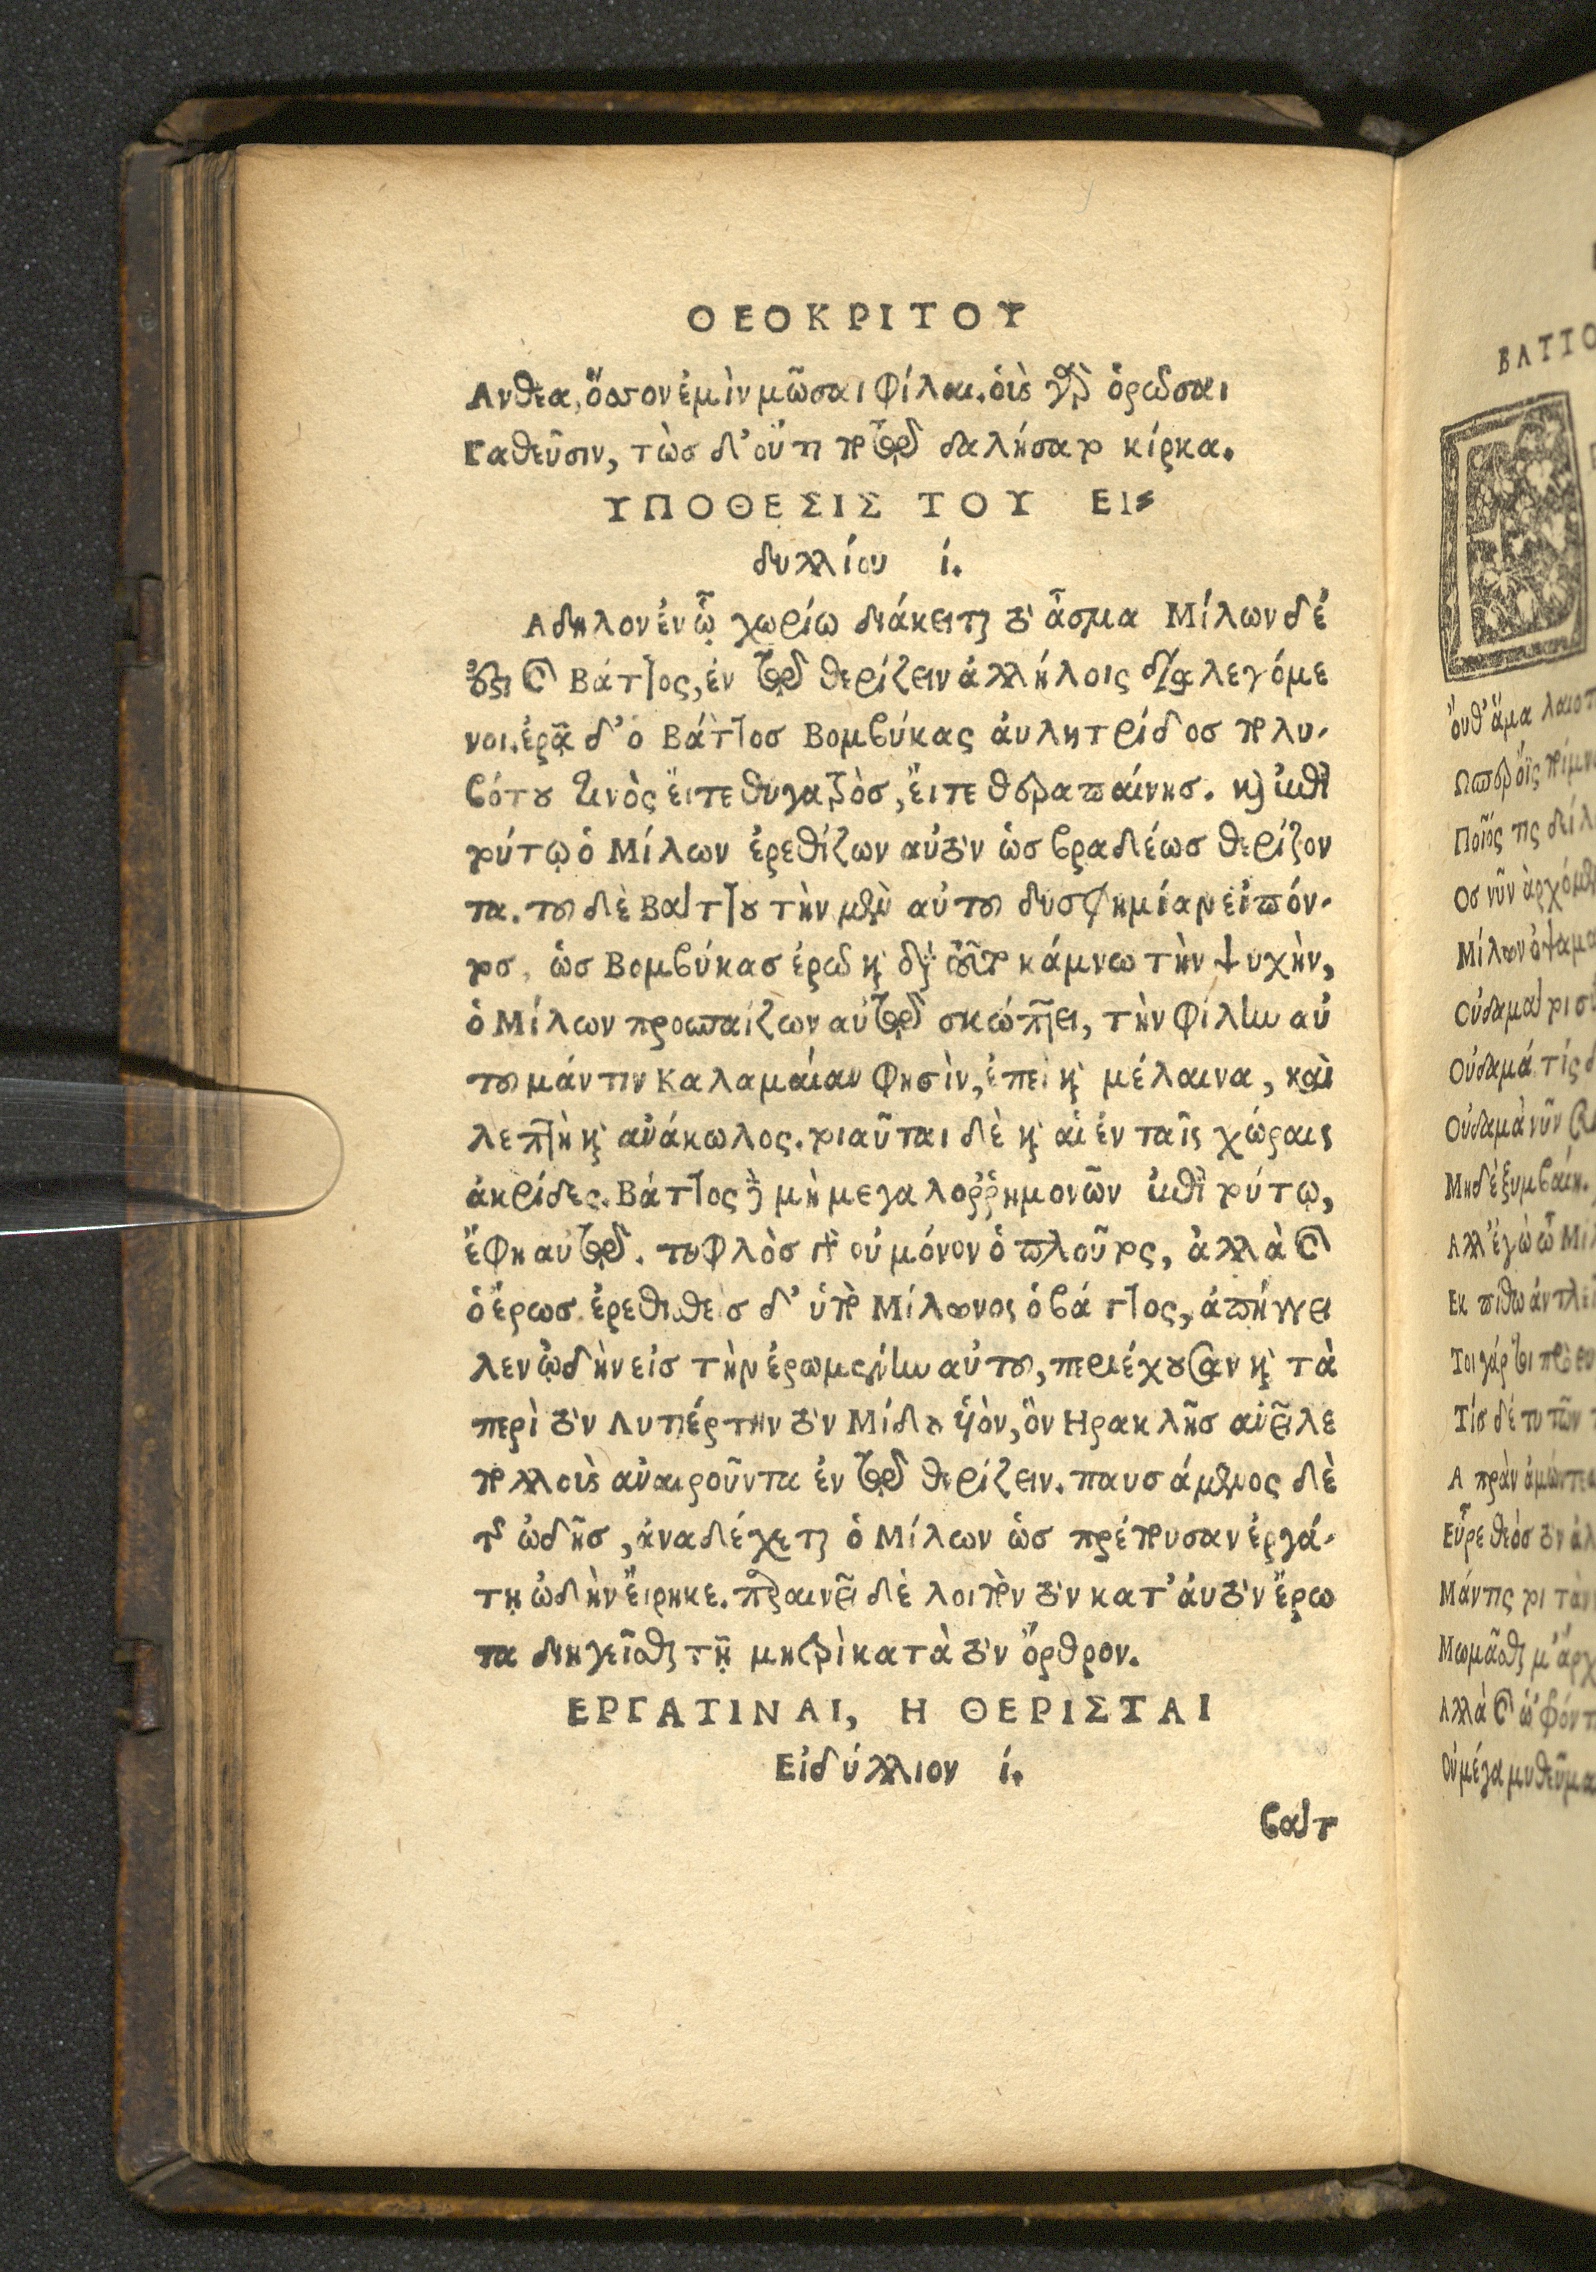 ΘΕΟΚΡΙΤΟΥ
Ανθεα, ὅσσον ἐμὶν μῶσαι φίλαι. οὓς γὰρ ὁρῶσαι
Γαθεῦσιν, τὼσ δ' οὔτι ποτῷ δαλήσατο κίρκα.
ΥΠΟΘΕΣΙΣ ΤΟΥ ΕΙ-
δυλλίου ί.
Αδηλον ἐν ᾧ χωρίω διάκειται τὸ ἆσμα Μίλων δέ
ἐστι καὶ Βάττος, ἐν τῷ θερίζειν ἀλλήλοις διαλεγόμε
νοι. ἐρᾷ δ' ὁ Βάττοσ Βομβύκας ἀυλητρίδοσ πολυ-
βότου τινὸς ἔιτε θυγατρὸσ, ἔιτε θεραπαίνησ. καὶ ἐπὶ
τούτῳ ὁ Μίλων ἐρεθίζων αὐτὸν ὡσ βραδέωσ θερίζον
τα. του δὲ Βάττου τὴν μὲν αὐτου δυσφημίαν εἰπόν-
τοσ, ὡσ Βομβύκασ ἐρῶ καὶ διὰ τοῦτο κάμνω τὴν ψυχὴν,
ὁ Μίλων προσπαίζων αὐτῷ σκώπτει, τὴν φίλην αὐ
του μάντιν Καλαμαίαν φησὶν, ἐπεὶ καὶ μέλαινα, καὶ
λεπτὴ καὶ ανάκωλος. τοιαῦται δὲ καὶ αἱ ἐν ταῖς χώραις
ἀκρίδες. Βάττος δὲ μὴ μεγαλορρημονῶν ἐπὶ τούτῳ,
ἔφη αὐτῷ. τυφλὸσ γὰρ οὐ μόνον ὁ πλοῦτος, ἀλλὰ καὶ
ὁ ἔρωσ. ἐρεθισθεὶσ δ' ὑπὸ Μίλωνος ὁ βάττος, ἀπήγγει
λεν ᾠδὴν εἰσ τὴν ἐρωμένην αὐτου, περιέχουσαν καὶ τὰ
περὶ τὸν Λυτιέρτην τὸν Μίδου ὑιὸν, ὃν Ηρακλῆσ ανεῖλε
πολλοὺς αναιροῦντα ἐν τῷ θερίζειν. παυσάμενος δὲ
τῆς ᾠδῆσ, ἀναδέχεται ὁ Μίλων ὡσ πρέπουσαν ἐργά-
τῃ ὠδὴν ἔιρηκε. παραινεῖ δὲ λοιπὸν τὸν κατ' ἀυτὸν ἔρω
τα διηγεῖσθαι τῇ μητρὶ κατὰ τὸν ὄρθρον.
ΕΡΓΑΤΙΝΑΙ, Η ΘΕΡΙΣΤΑΙ
Εἰδύλλιον ί.
βατ
ΒΑΤΤΟ
ὄυθ' ἅμα λαιοτ
Ωσπερ ὄϊς ποίμν
Ποῖός τις δείλ
Οσ νῦν ἀρχόμε
Μίλων ὀψαμα
Οὐδαμὰ τοι σ
Οὐδαμά τίς δ
Οὐδαμὰ νῦν
Μηδέ ξυμβαίη.
Αλλ' ἐγὼ ὦ Μί
Εκ πίθω ἀντλεῖ
Τοιγάρ τοι πρὸ
Τίσ δέ τυ τῶν
Α πρὰν ἀμώντε
Εὗρε θεὸσ τὸν ἀλ
Μάντις τοι τὰν
Μωμᾶσθαι μ' ἄρχ
Αλλὰ καὶ ὡ' φόντ
Οὐ μέγα μυθεῦμα